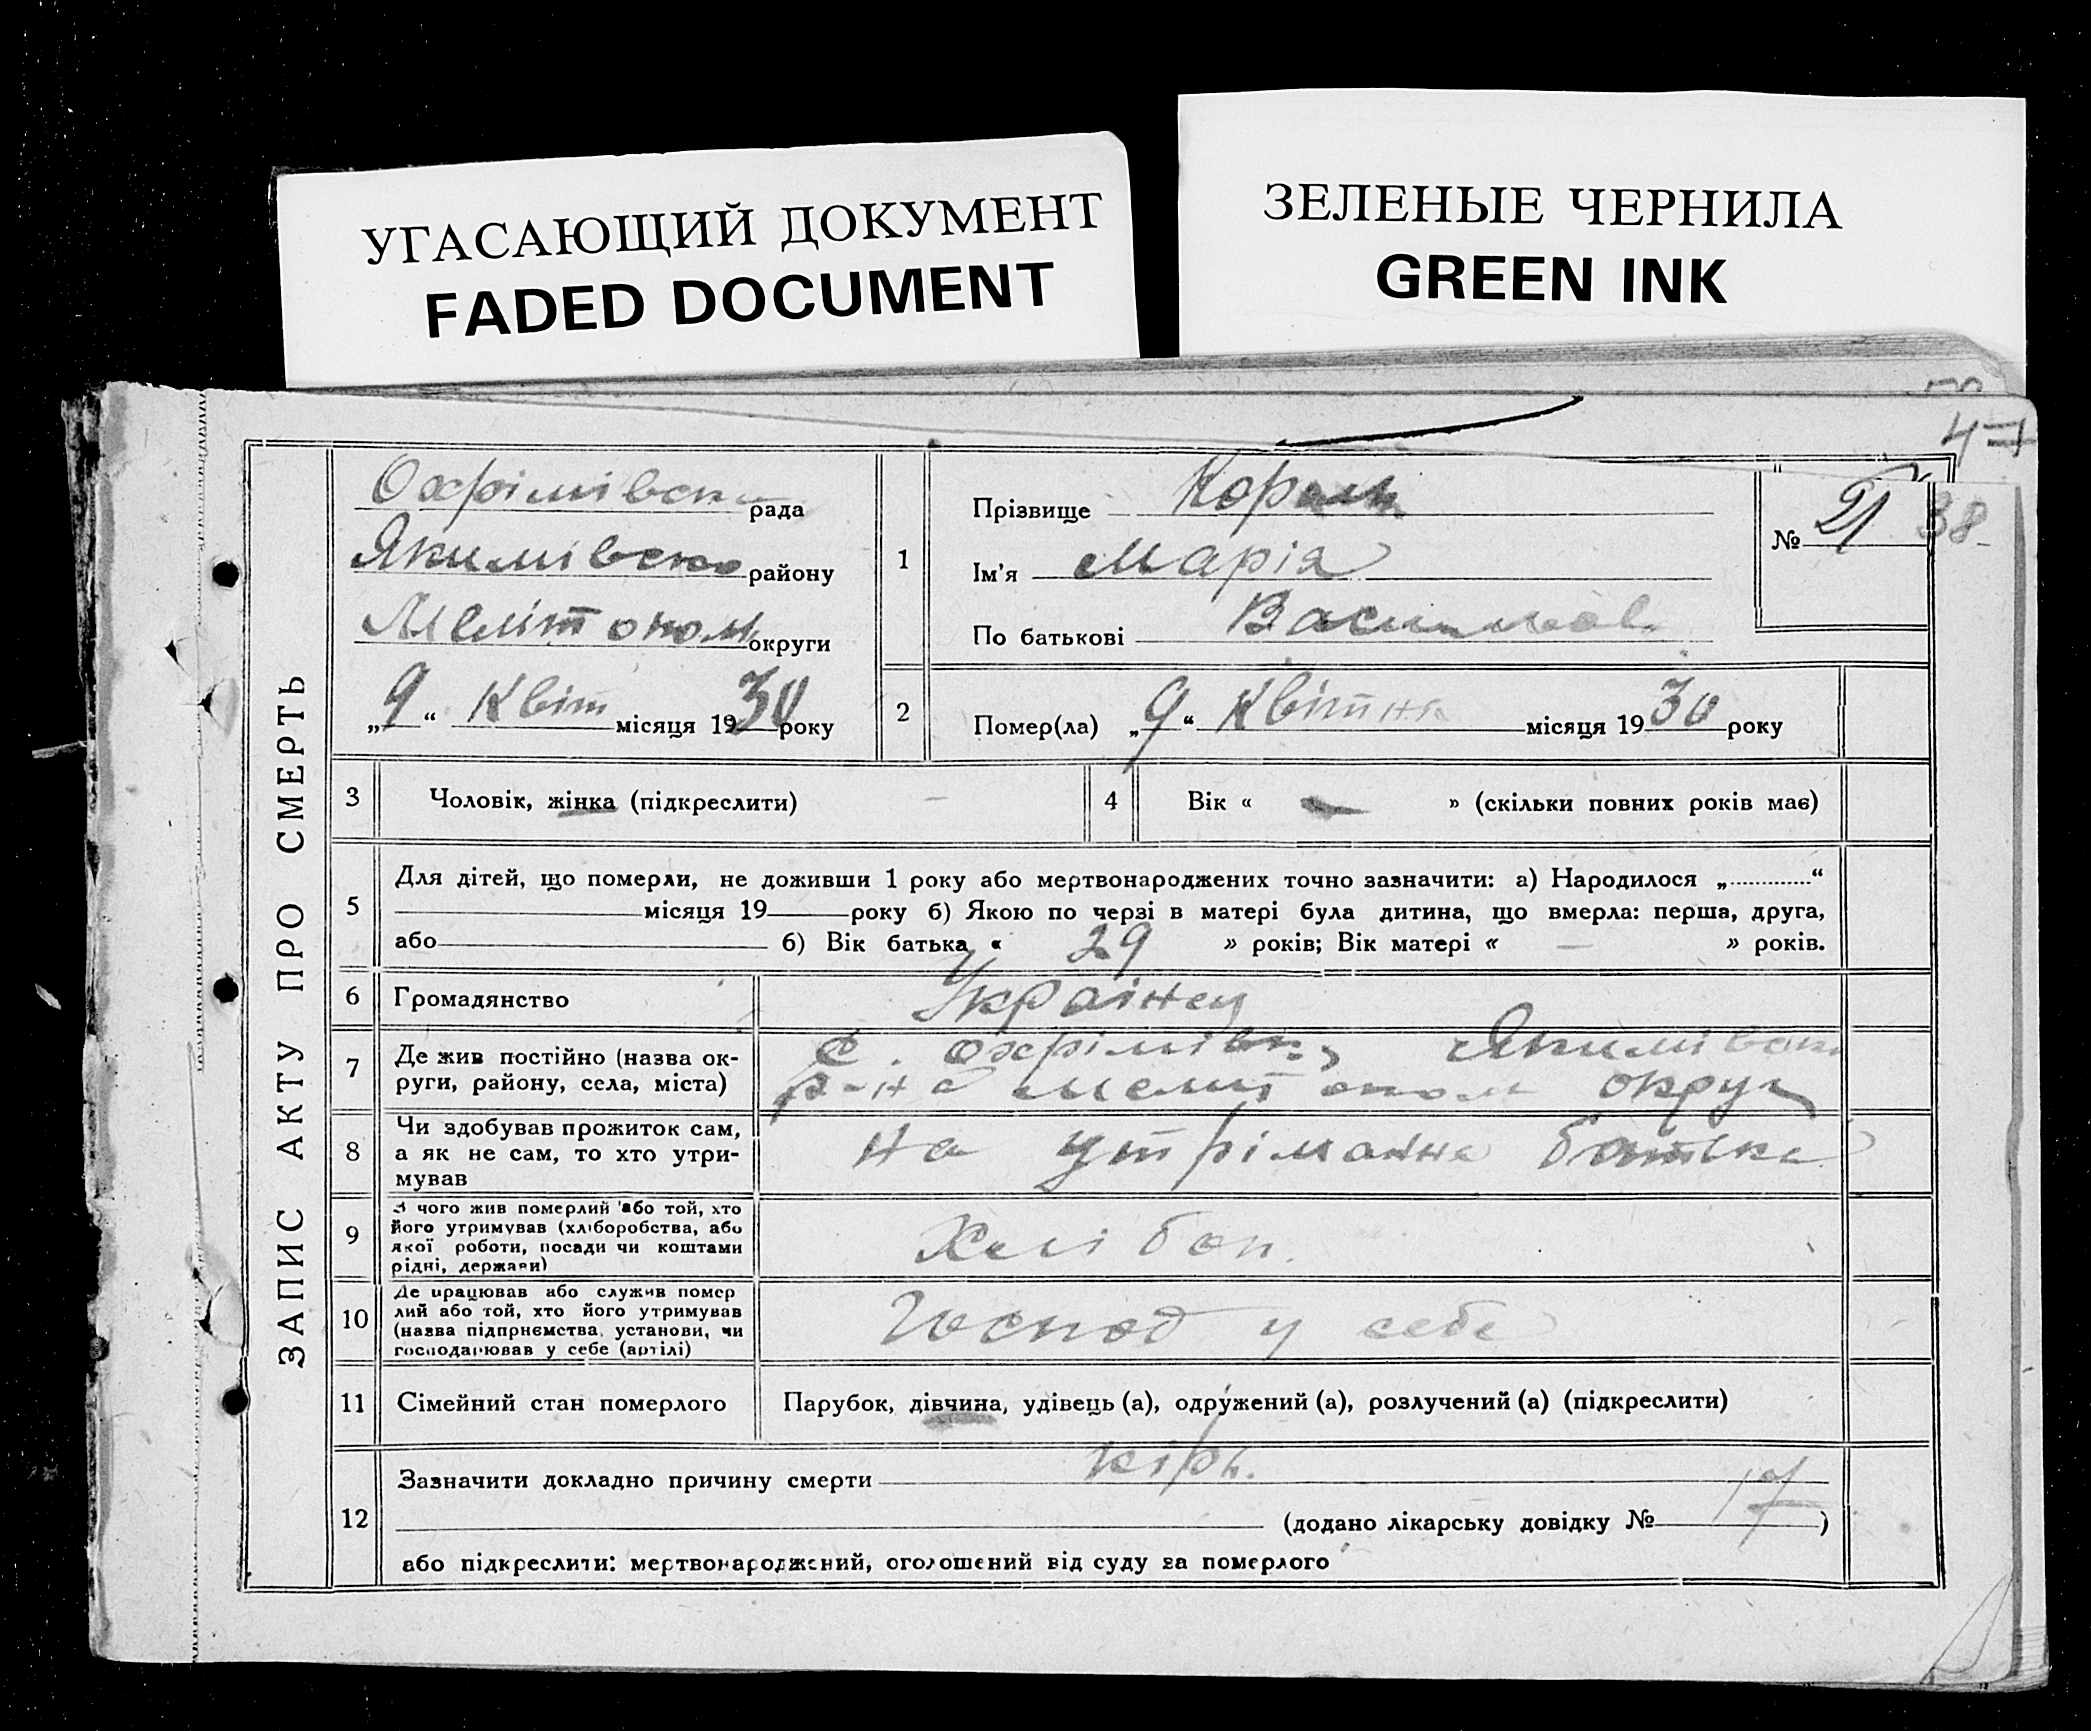 УГАСАЮЩИЙ ДОКУМЕНТ
FADED DOCUMENT
ЗЕЛЕНЫЕ ЧЕРНИЛА
GREEN INK
47
38
ЗАПИС АКТУ ПРО СМЕРТЬ
Охрімівська рада
Якимівсько району
Меліт округи
„9“ Квіт місяця 1930 року
1
Прізвище
Ім'я Марія
По батькові
№ 21
2
Помер(ла) „9“ Квітня місяця 1930 року
3 Чоловік, жінка (підкреслити)
4 Вік « — » (скільки повних років має)
5 Для дітей, що померли, не доживши 1 року або мертвонароджених точно зазначити: а) Народилося „ “
місяця 19 року б) Якою по черзі в матері була дитина, що вмерла: перша, друга,
або б) Вік батька « 29 » років; Вік матері « — » років.
6 Громадянство Українец
7 Де жив постійно (назва ок-
руги, району, села, міста)
с. Охрімівка, Якимівськ
р-на Меліт округ
8 Чи здобував прожиток сам,
а як не сам, то хто утри-
мував
На утріманна батька
9 З чого жив померлий або той, хто
його утримував (хліборобства, або
якої роботи, посади чи коштами
рідні, держави)
10 Де працював або служив помер
лий або той, хто його утримував
(назва підприємства, установи, чи
господарював у себе (артілі)
Господ у себе
11 Сімейний стан померлого Парубок, дівчина, удівець (а), одружений (а), розлучений (а) (підкреслити)
12 Зазначити докладно причину смерти кірь.
(додано лікарську довідку № 17)
або підкреслити: мертвонароджений, оголошений від суду за померлого